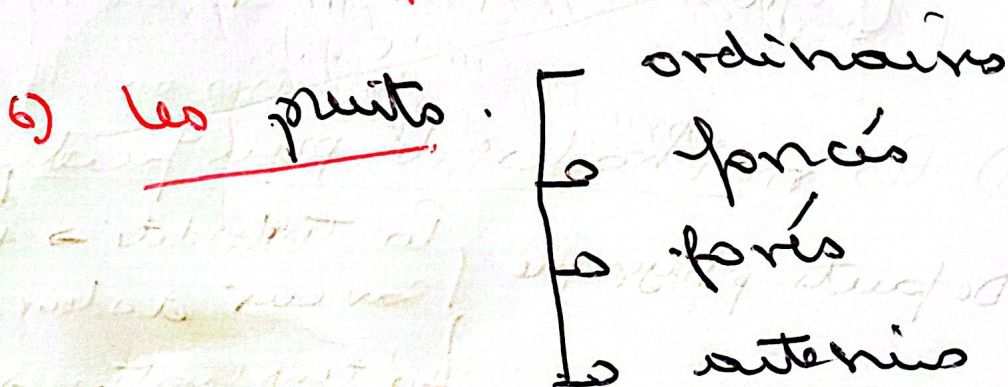 6) les puits.
ordinaires
foncés
forés
artesiens